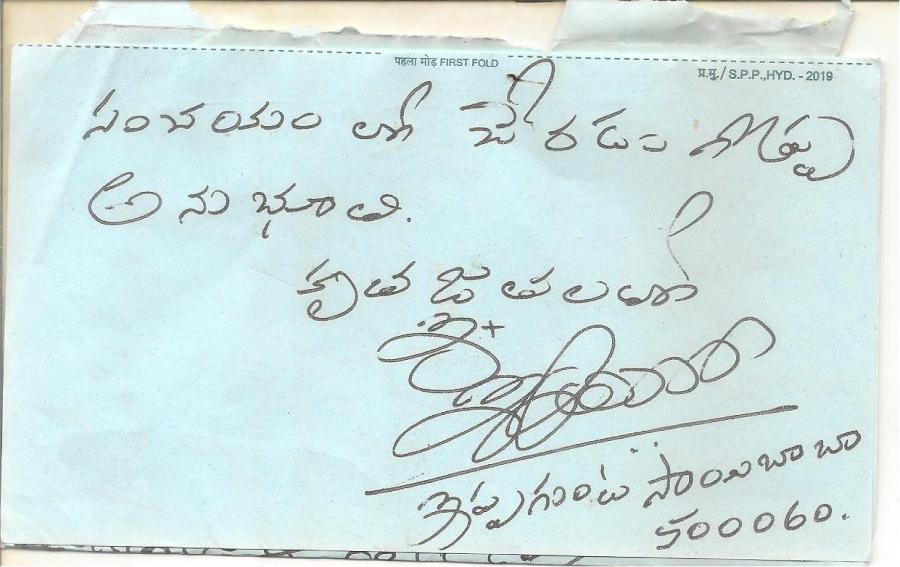 पहला मोड FIRST FOLD
प्र.मु./ S.P.P.,HYD. - 2019
సంచయం లో చేరడం గొప్ప
అనుభూతి.
కృతజ్ఞతలతో
సాయిబాబా
500060.